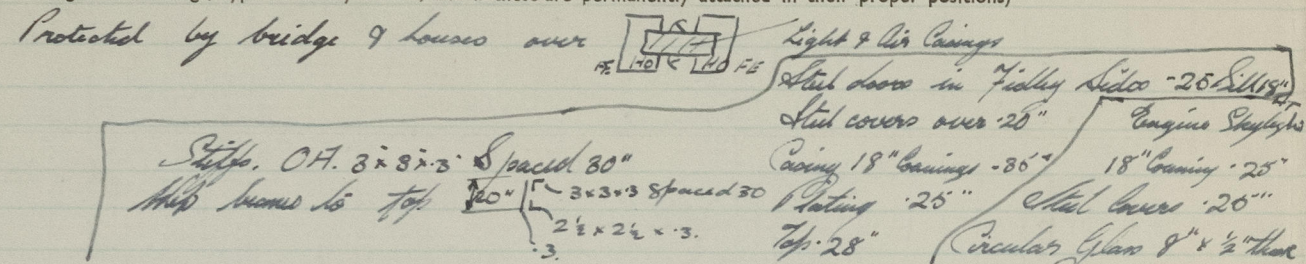 are permanently attached in their proper positions)
Protected by bridge & houses over
FE HO HO FE
Light & Air Casings
Steel doors in Fidley Sides -25 Sill 18"
Steel covers over .20"
Casing 18" Coamings -35"
Plating .25"
Top .28"
Engine Skylight
18" Coaming .25"
Steel Covers .25"
Circular Glass 8" x 1/2" thick
Stiffs. O.A. 3 x 3 x .3 Spaced 30"
to top 20" 3 x 3 x .3 Spaced 30
2 1/2 x 2 1/2 x .3.
.3.